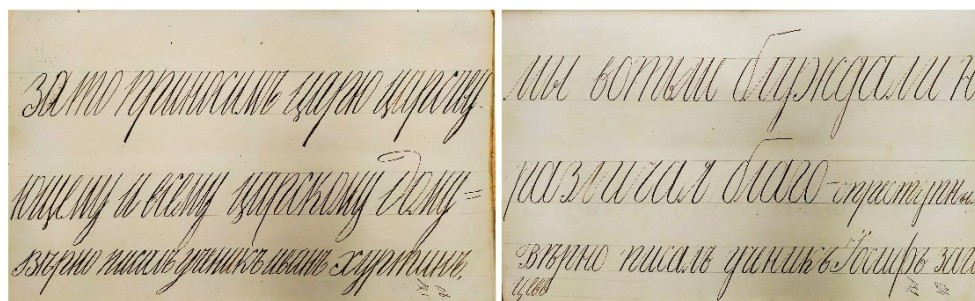 за то приносимъ царю царству-
ющему и всему царскому дому=
вѣрно писалъ ученикъ иванъ
мы вотьми блуждали н
различая благо-
вѣрно писалъ ученикъ